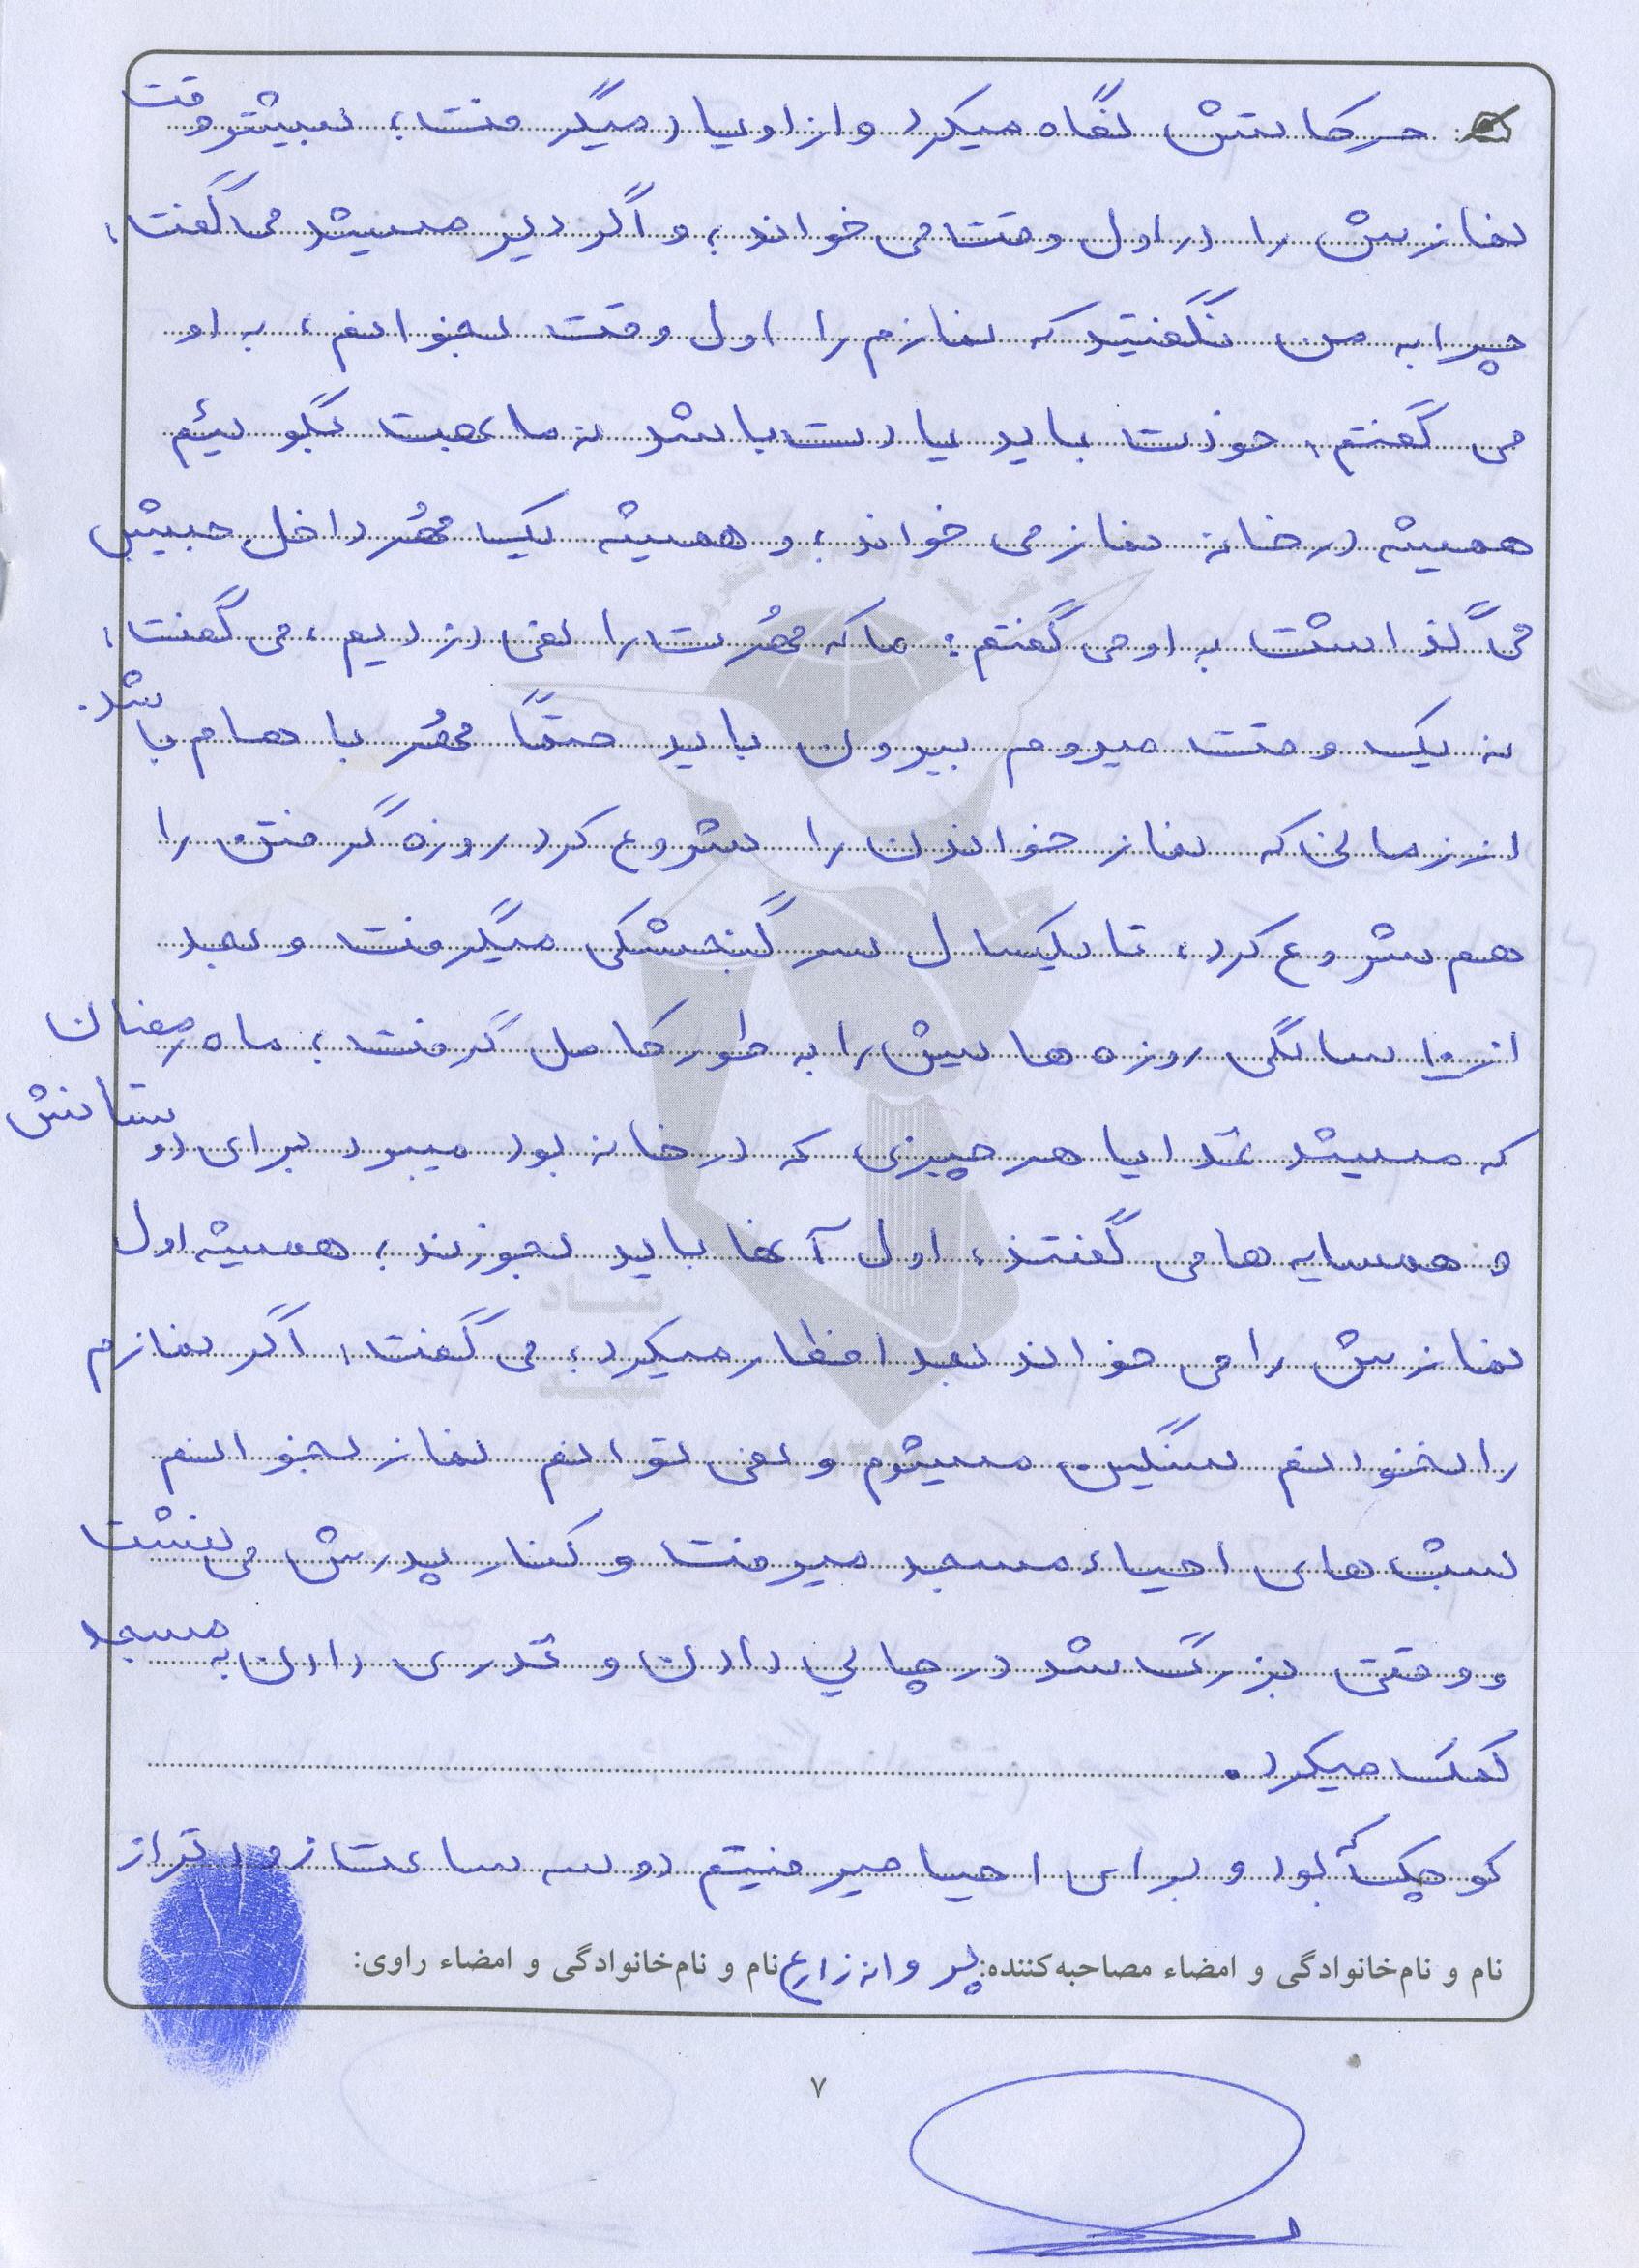 حرکاتش نگاه میکرد و از او یاد میگرفت؛ بیشتر وقت
نمازش را در اول وقت می خواند؛ و اگر دیر میشد می گفت؛
چرا به من نگفتید که نمازم را اول وقت بخوانم، به او
می گفتم؛ خودت باید یادت باشد نه ما بهت بگوییم
همیشه در خانه نماز می خواند؛ و همیشه یک مُهر داخل جیبش
می گذاشت به او می گفتم: ما که مُهرت را نمی دزدیم، می گفت؛
نه یک وقت میروم بیرون باید حتماً مُهر با هام باشد.
از زمانی که نماز خواندن را شروع کرد روزه گرفتن را
هم شروع کرد، تا یکسال سر گنجشکی میگرفت و بعد
از ۱۰ سالگی روزه هایش را به طور کامل گرفت؛ ماه رمضان
که میشد غذا یا هر چیزی که در خانه بود میبرد برای دوستانش
و همسایه ها می گفتند؛ اول آنها باید بخورند؛ همیشه اول
نمازش را می خواند بعد افطار میکرد؛ می گفت؛ اگر نمازم
را نخوانم سنگین میشوم و نمی توانم نماز بخوانم
شب های احیاء مسجد میرفت و کنار پدرش می نشست
و وقتی بزرگ شد در چایی دادن و نذری دادن به مسجد
کمک میکرد.
کوچک بود و برای احیا میرفتیم دو سه ساعت زودتر از
نام و نام‌خانوادگی و امضاء مصاحبه‌کننده: پروانه زارع نام و نام‌خانوادگی و امضاء راوی:
۷